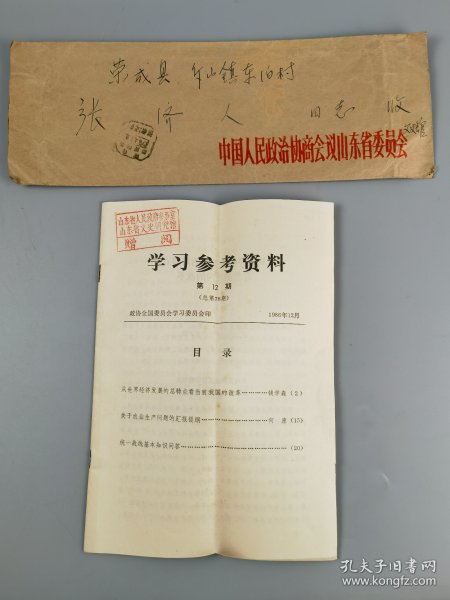 荣成县 牟山镇东泊村
张 济 人 同志 收
中国人民政治协商会议山东省委员会
山东省人民政府参事室
山东省文史研究馆
赠阅
学习参考资料
第 12 期
(总第78期)
政协全国委员会学习委员会印 1986年12月
目 录
从世界经济发展的总特点看当前我国的改革…………钱学森(2)
关于农业生产问题的汇报提纲…………何康(15)
统一战线基本知识问答…………(20)
孔夫子旧书网
www.kongfz.com